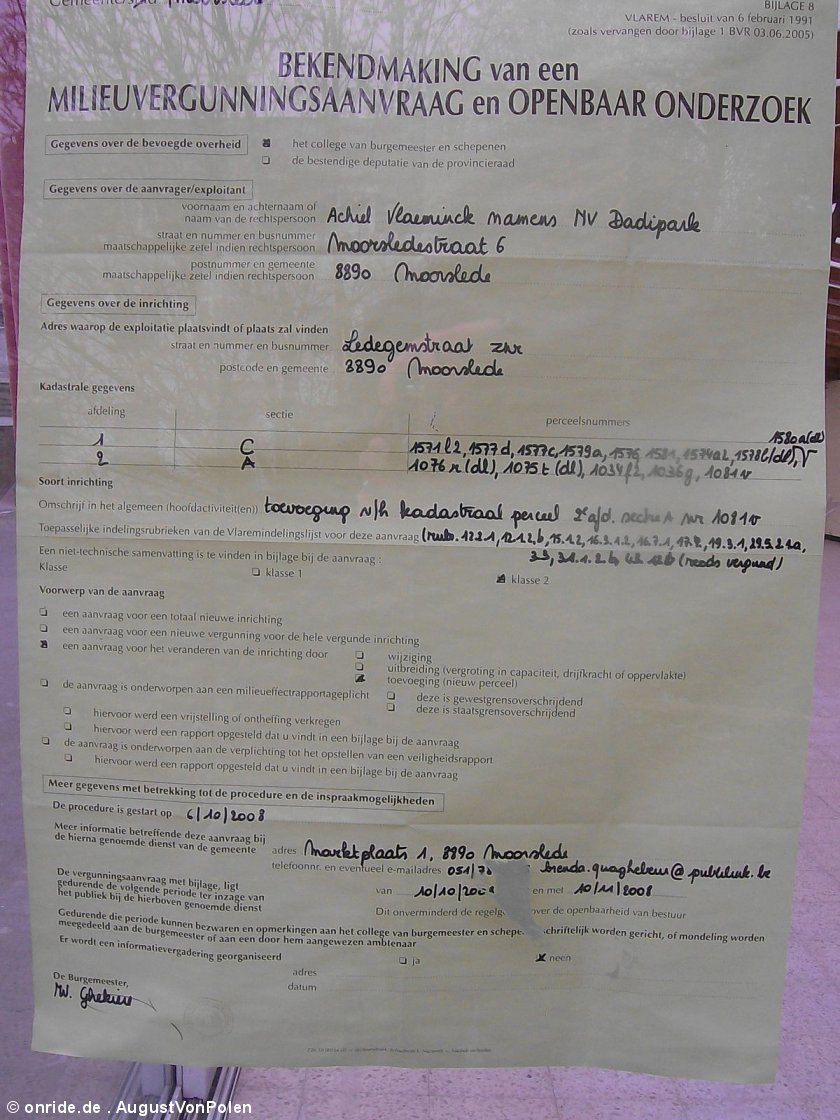 BIJLAGE 8
VLAREM - besluit van 6 februari 1991
(zoals vervangen door bijlage 1 BVR 03.06.2005)
BEKENDMAKING van een
MILIEUVERGUNNINGSAANVRAAG en OPENBAAR ONDERZOEK
Gegevens over de bevoegde overheid
het college van burgemeester en schepenen
de bestendige deputatie van de provincieraad
Gegevens over de aanvrager/exploitant
voornaam en achternaam of
naam van de rechtspersoon Achiel Vlaeminck namens NV Dadipark
straat en nummer en busnummer
maatschappelijke zetel indien rechtspersoon Moorsledestraat 6
postnummer en gemeente
maatschappelijke zetel indien rechtspersoon 8890 Moorslede
Gegevens over de inrichting
Adres waarop de exploitatie plaatsvindt of plaats zal vinden
straat en nummer en busnummer Ledegemstraat znr
postcode en gemeente 8890 Moorslede
Kadastrale gegevens
afdeling sectie perceelsnummers
1580a(dl)
1 C 1571l2, 1577d, 1577c, 1579a, 1576, 1581, 1574a2, 1578l(dl),
2 A 1076r(dl), 1075t(dl), 1034f2, 1036g, 1081v
Soort inrichting
Omschrijf in het algemeen (hoofdactiviteit(en)) toevoeging v/h kadastraal perceel 2e afd. sectie A nr 1081v
Toepasselijke indelingsrubrieken van de Vlaremindelingslijst voor deze aanvraag (rubr. 12.2.1, 12.1.2.b, 15.1.2, 16.3.1.2, 16.7.1, 17.2, 19.3.1, 29.5.2.1a,
Een niet-technische samenvatting is te vinden in bijlage bij de aanvraag : 3.3, 31.1.2.b, (reeds vergund)
Klasse klasse 1 klasse 2
Voorwerp van de aanvraag
een aanvraag voor een totaal nieuwe inrichting
een aanvraag voor een nieuwe vergunning voor de hele vergunde inrichting
een aanvraag voor het veranderen van de inrichting door wijziging
uitbreiding (vergroting in capaciteit, drijfkracht of oppervlakte)
toevoeging (nieuw perceel)
de aanvraag is onderworpen aan een milieueffectrapportageplicht deze is gewestgrensoverschrijdend
deze is staatsgrensoverschrijdend
hiervoor werd een vrijstelling of ontheffing verkregen
hiervoor werd een rapport opgesteld dat u vindt in een bijlage bij de aanvraag
de aanvraag is onderworpen aan de verplichting tot het opstellen van een veiligheidsrapport
hiervoor werd een rapport opgesteld dat u vindt in een bijlage bij de aanvraag
Meer gegevens met betrekking tot de procedure en de inspraakmogelijkheden
De procedure is gestart op 6/10/2008
Meer informatie betreffende deze aanvraag bij
de hierna genoemde dienst van de gemeente adres Marktplaats 1, 8890 Moorslede
telefoonnr. en eventueel e-mailadres 051/78 brenda.quaghebeur@publilink.be
De vergunningsaanvraag met bijlage, ligt
gedurende de volgende periode ter inzage van van 10/10/2008 en met 10/11/2008
het publiek bij de hierboven genoemde dienst
Dit onverminderd de regelge over de openbaarheid van bestuur
Gedurende die periode kunnen bezwaren en opmerkingen aan het college van burgemeester en schepe schriftelijk worden gericht, of mondeling worden
meegedeeld aan de burgemeester of aan een door hem aangewezen ambtenaar
Er wordt een informatievergadering georganiseerd ja neen
adres
datum
De Burgemeester,
W. Ghekiere
© onride.de . AugustVonPolen